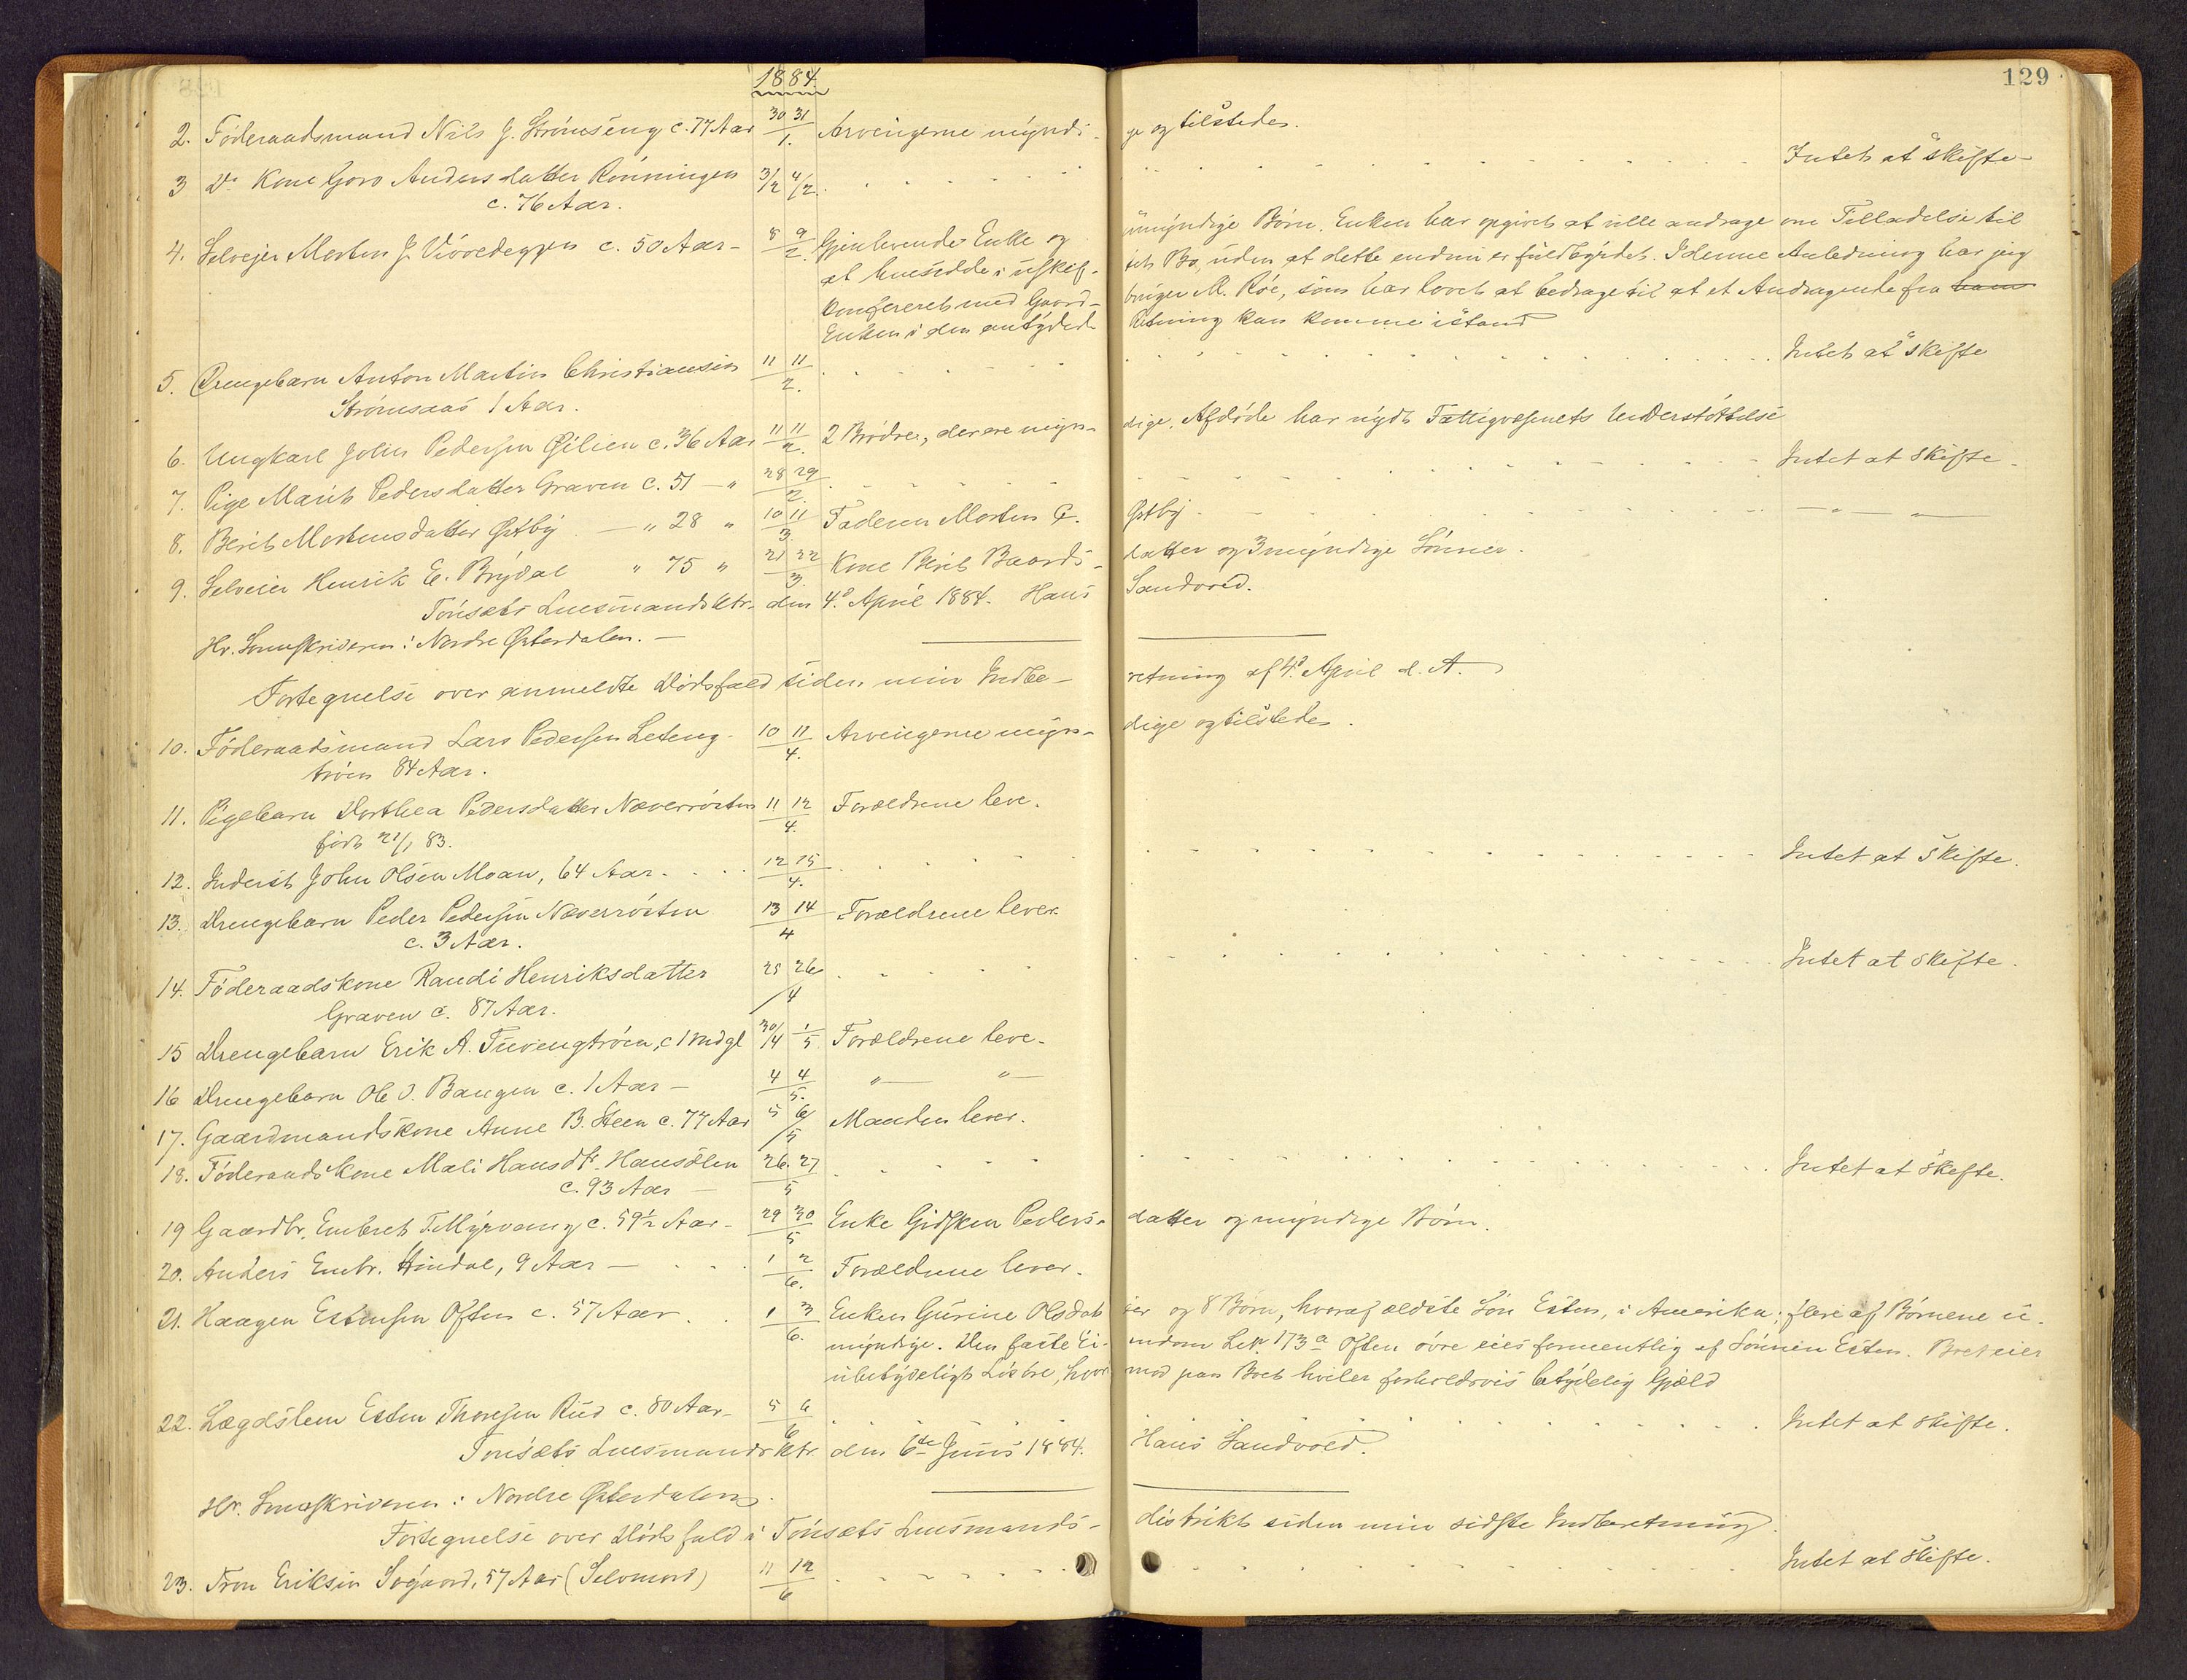 129
1884.
2. Föderaadsmand Nils J. Strömseng c. 77 Aar 30 31/1. Arvingerne myndi- ge og tilstede.
3 Do Kone Goro Andersdatter Rönningen 3/2 4/2. Intet at skifte
c. 76 Aar.
4. Selveier Morten J. c. 50 Aar - 8 9/2. Gjenlevende Enke og umyndige Börn. Enken har opgivet at ville andrage om Tilladelse til
at hensidde i uskif- tet Bo, uden at dette endnu er fuldbyrdet. I denne Anledning har jeg
konfereret med Gaard- bruger M. Röe, som har lovet at bedrage til at et Andragende fra ham
Enken i den antydede Retning kan komme istand
5. Drengebarn Anton Martin Christiansen 11 11/2. Intet at skifte
Strömsaas 1 Aar.
6. Ungkarl John Pedersen Öilien c. 36 Aar 11 11/2. 2 Brödre, der ere myn- dige. Afdöde har nydt Fattigvæsenets Understöttelse
7. Pige Marit Pedersdatter Graven c. 51 - " 28 29/2. Intet at skifte.
8. Berit Mortensdatter Östby - " 28 " 10 11/3. Faderen Morten C. Östby - " - " -
9. Selveier Henrik E. Brydal " 75 " 21 22/3. Kone Berit Baards- datter og 3 myndige Sönner.
Tönsæts Lensmandsktr. den 4de April 1884. Hans Sandvold.
Hr. Sorenskriveren i Nordre Østerdalen. -
Fortegnelse over anmeldte Dödsfald siden min Indbe- retning af 4de April d. A.
10. Föderaadsmand Lars Pedersen Leteng- 10 11/4. Arvingerne myn- dige og tilstede.
tröen 84 Aar.
11. Pigebarn Dorthea Pedersdatter Næverrösten 11 12/4. Forældrene leve.
född 21/1 83.
12. Inderst John Olsen Moan, 64 Aar. 12 15/4. Intet at skifte.
13. Drengebarn Peder Pedersen Næverrösten 13 14/4 Forældrene lever.
c. 3 Aar.
14. Föderaadskone Randi Henriksdatter 25 26/4 Intet at skifte.
Graven c. 87 Aar.
15 Drengebarn Erik A. Tuvengtröen, c 1 mdgl 30/4 1/5 Forældrene leve.
16 Drengebarn Ole O. Bangen c. 1 Aar - 4 4/5. " - " -
17. Gaardmandskone Anne B. Steen c. 74 Aar 5 6/5 Manden lever.
18. Föderaadskone Mali Hansdtr. Hansölen 26. 27/5 Intet at skifte.
c. 93 Aar -
19 Gaardbr. Embret T. Myrvang c. 59½ Aar - 29 30/5 Enke Gidsken Peders- datter og myndige Börn.
20. Anders Embr. Hindal, 9 Aar - 1 2/6. Forældrene lever.
21. Haagen Estensen Often c. 57 Aar 1 3/6. Enken Gurine Olsdat- ter og 8 Börn, hvoraf ældste Sön Esten, i Amerika; flere af Börnene u-
myndige. Den faste Ei- endom Lnr. 173a Often övre eies formentlig af Sönnen Esten. Boet eier
ubetydeligt Lösöre, hvor- mod paa Boet hviler forholdsvis betydelig Gjæld
22. Lægdslem Esten Thoresen Rud c. 80 Aar - 5 6/6 Intet at skifte.
Tönsæts Lensmandsktr. den 6te Juni 1884. Hans Sandvold.
Hr. Sorenskriveren i Nordre Østerdalen.
Fortegnelse over Dödsfald i Tönsæts Lensmands- distrikt siden min sidste Indberetning.
23. Tron Eriksen Sögaard, 57 Aar (Selvmord) 11 12/6 Intet at skifte.